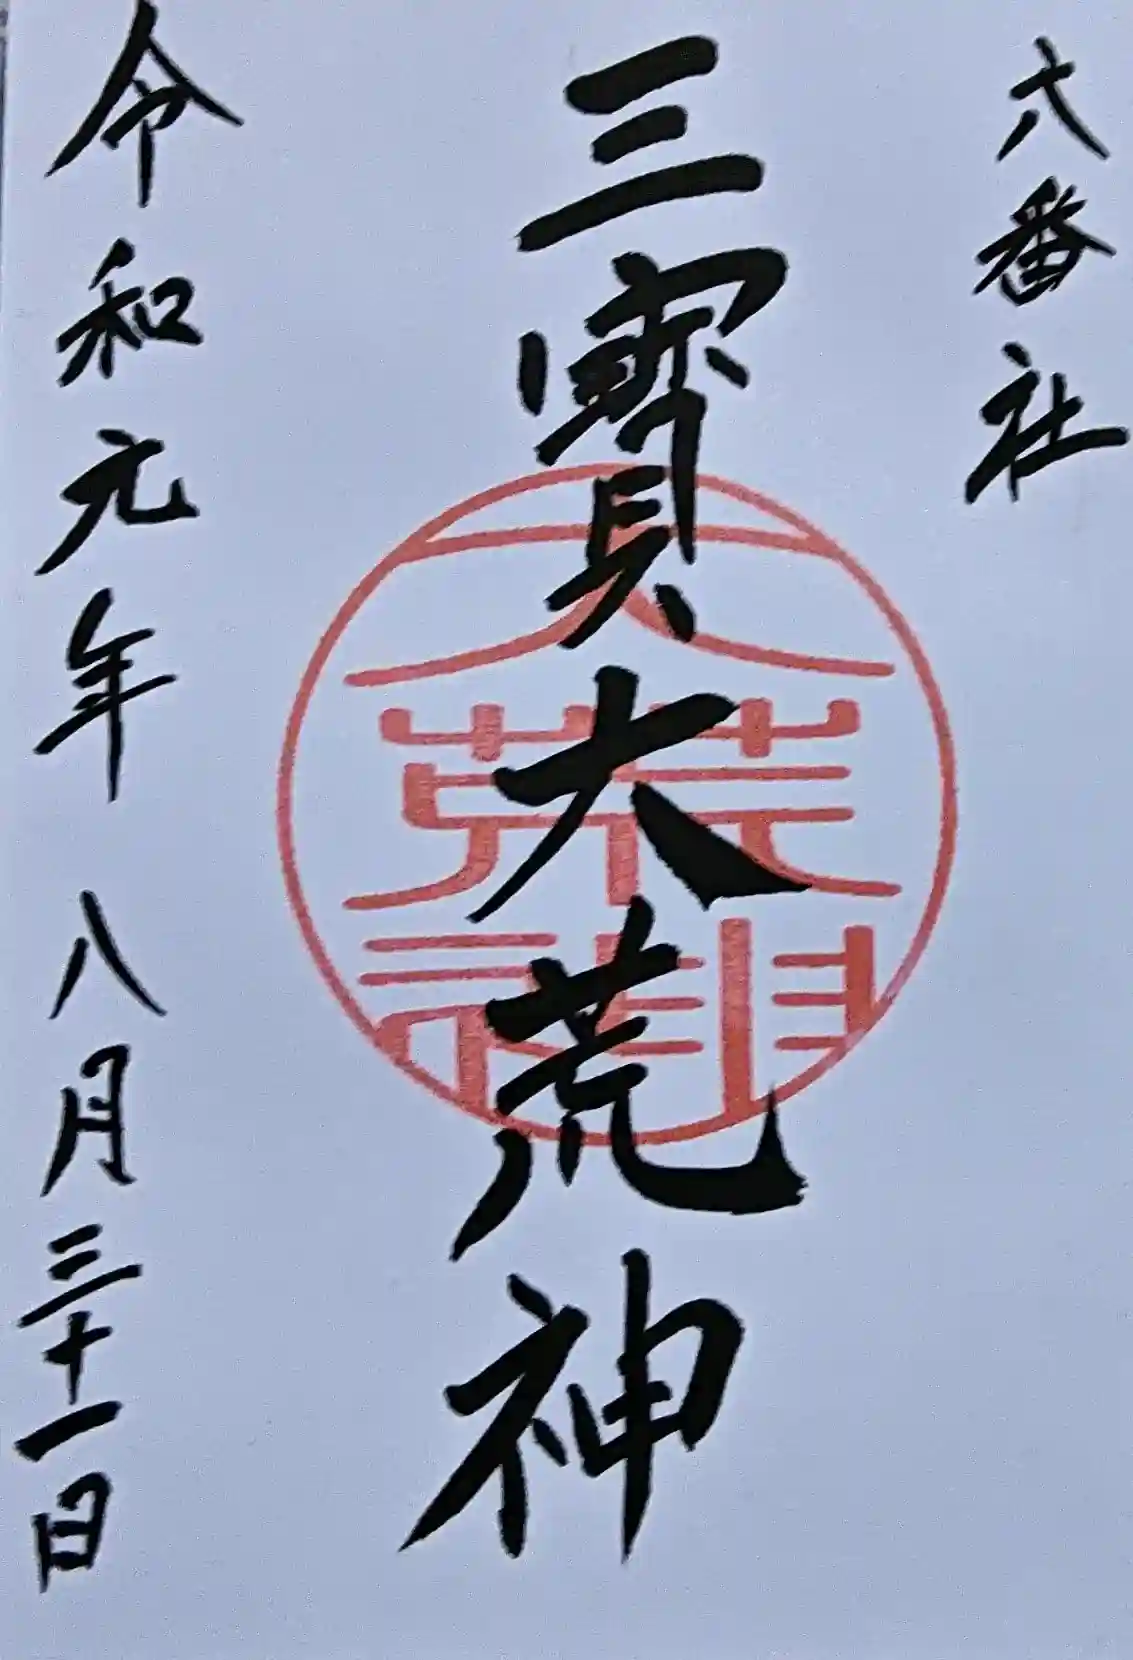 六番社
三寳大荒神
天
荒
神
令和元年 八月三十一日